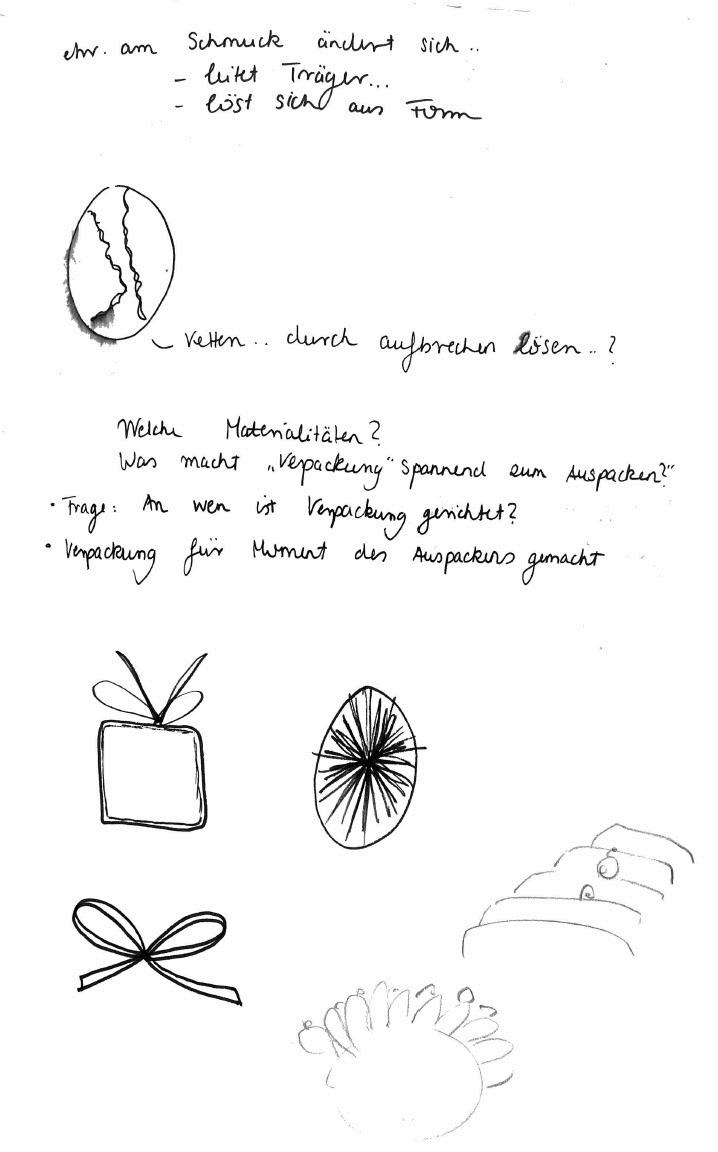 etw. am Schmuck ändert sich..
- leitet Träger...
- löst sich aus Form
Ketten.. durch aufbrechen lösen..?
Welche Materialitäten?
Was macht „Verpackung" spannend zum Auspacken?"
• Frage: An wen ist Verpackung gerichtet?
• Verpackung für Moment des Auspackens gemacht